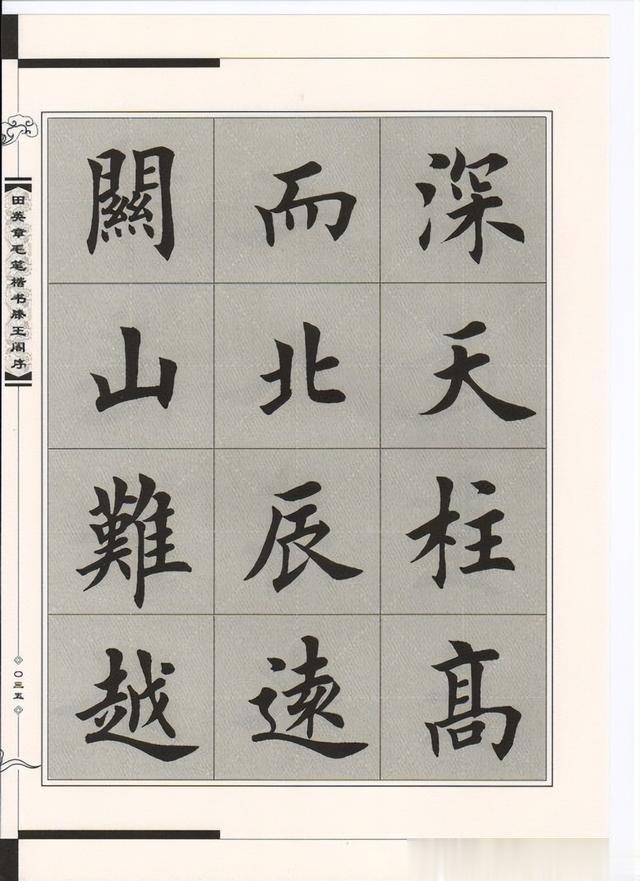 深天柱高
而北辰遠
關山難越
田英章毛笔楷书滕王阁序
〇三五